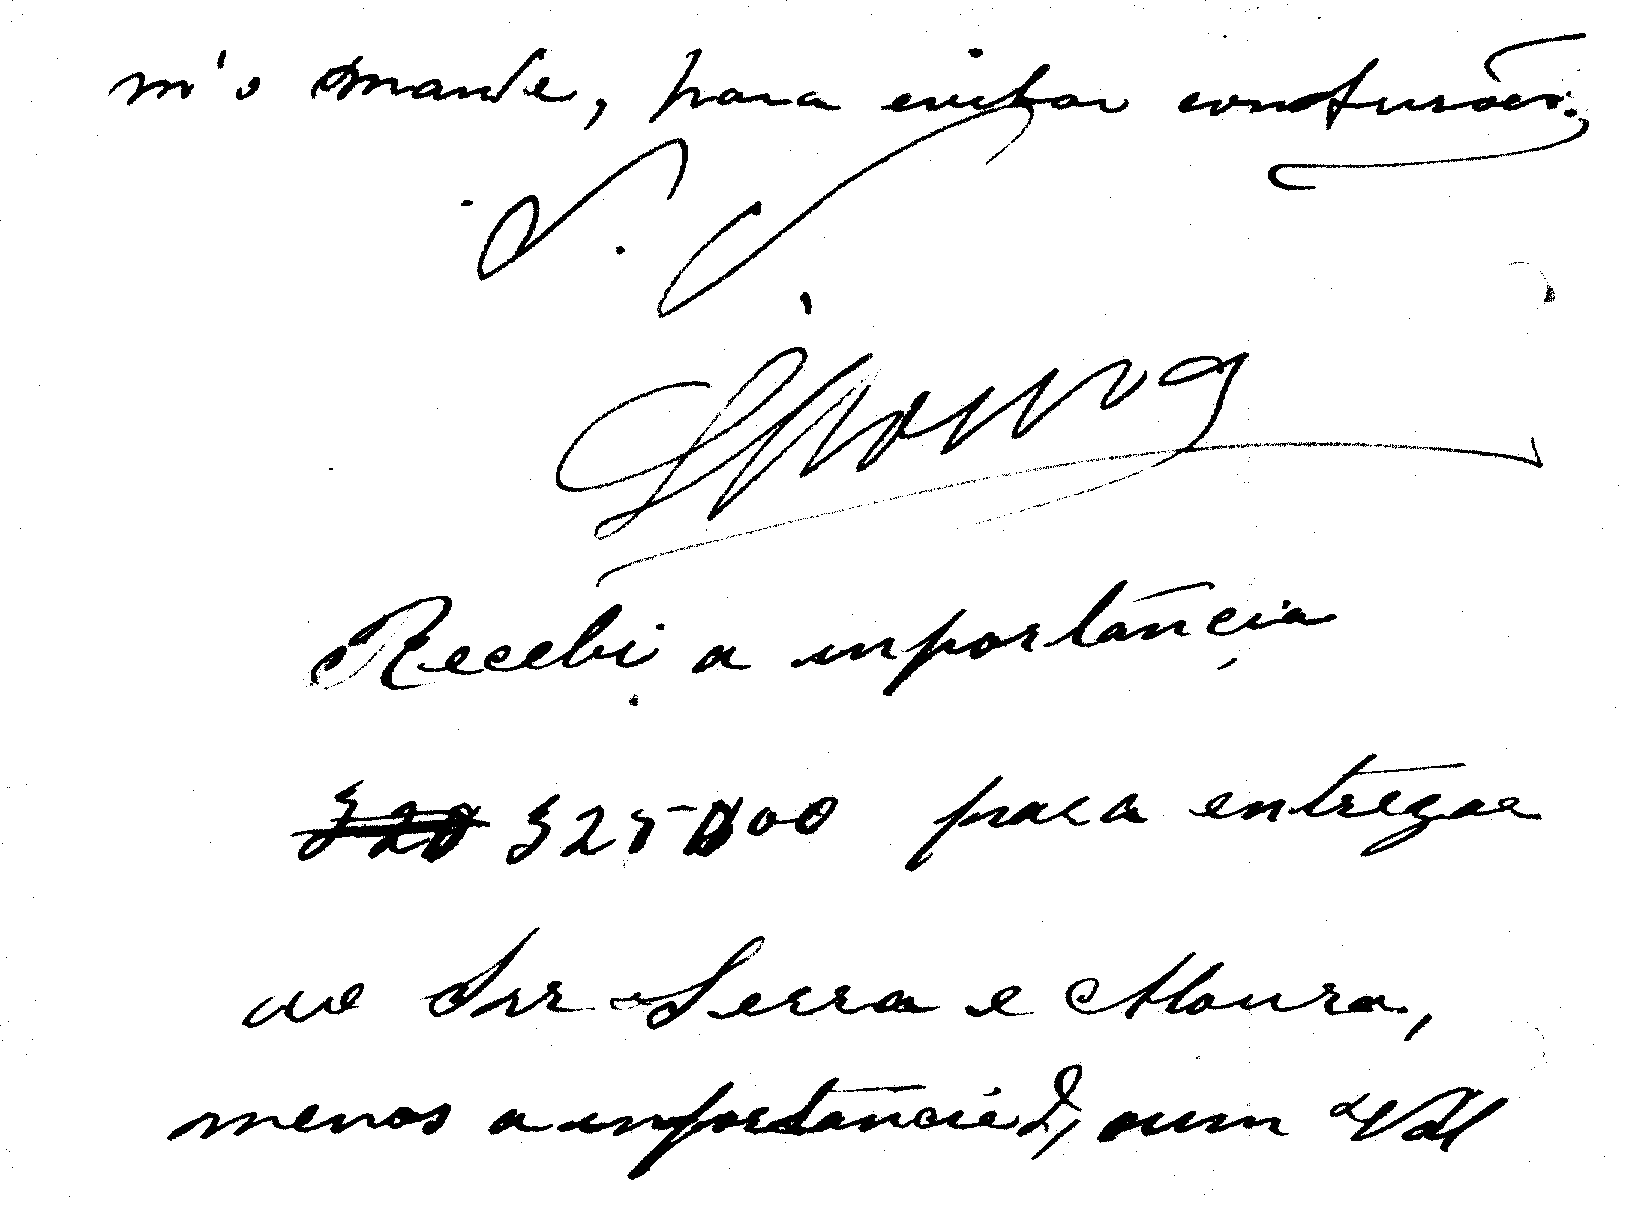 m'o mande, para evitar confusões.
Recebi a importância
320 325-000 para entregar
ao Snr Serra e Moura,
menos a importância, num Val